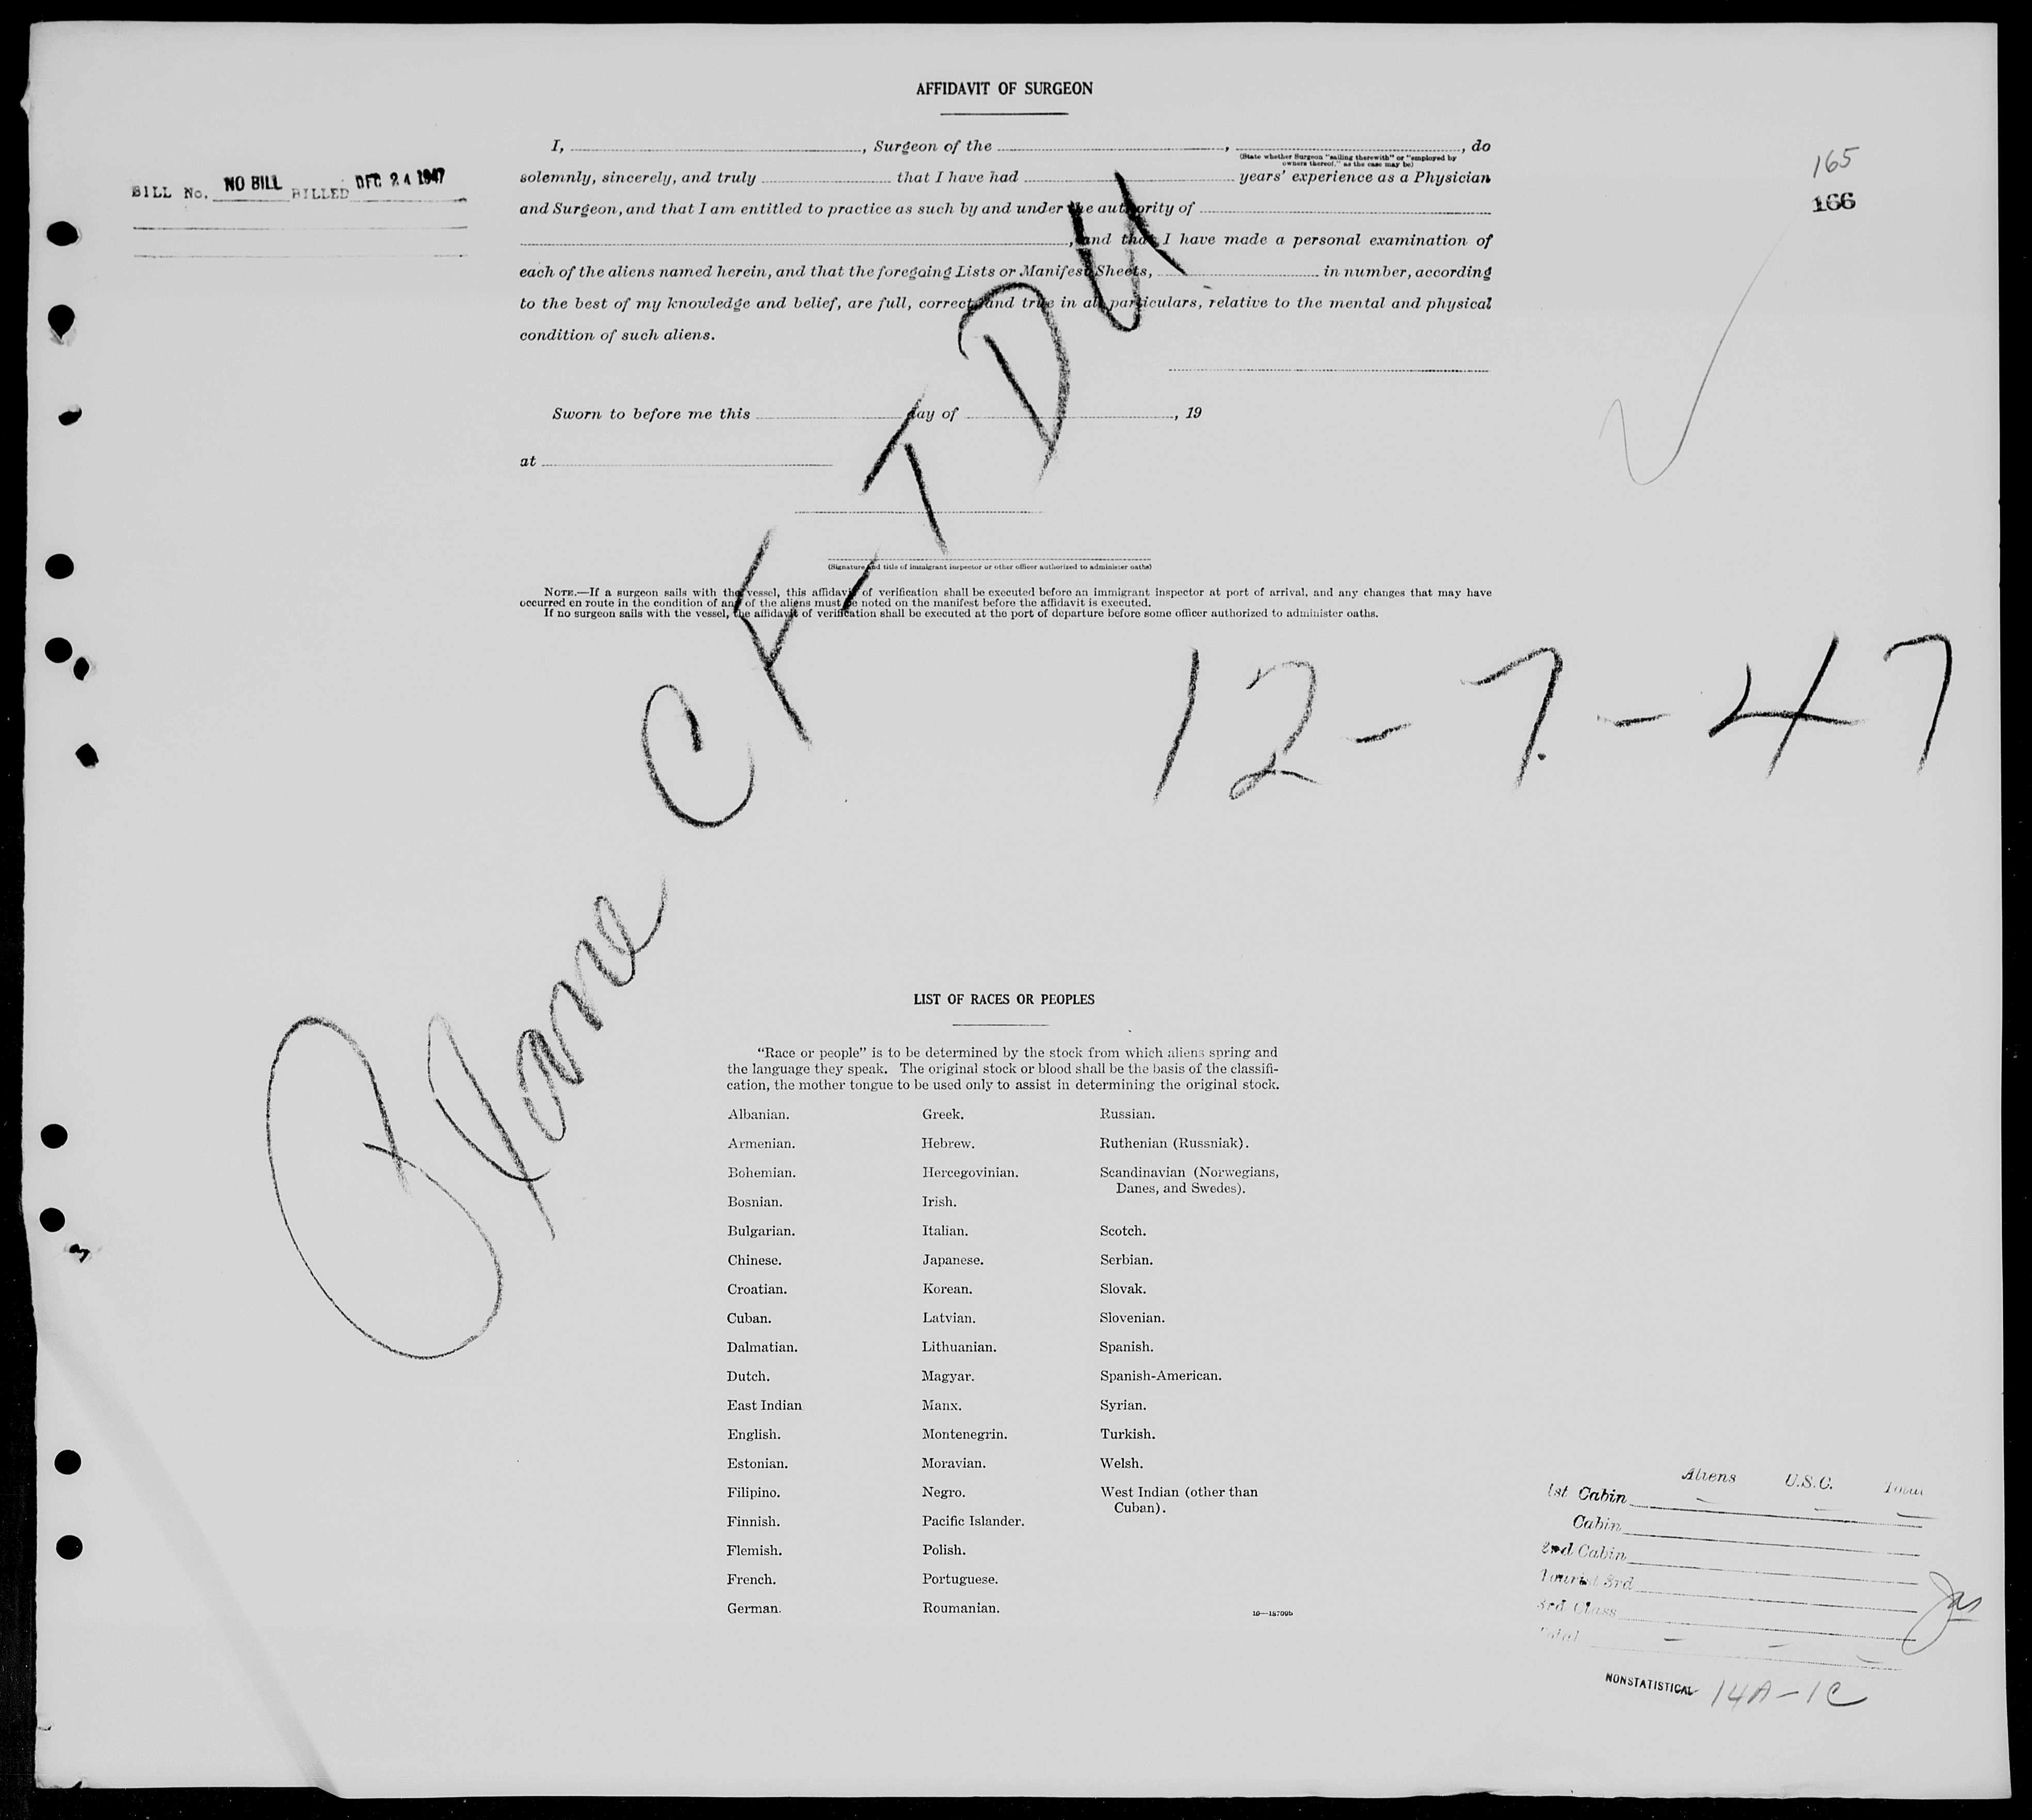 AFFIDAVIT OF SURGEON
I, , Surgeon of the , , do
(State whether Surgeon "sailing therewith" or "employed by
owners thereof," as the case may be)
solemnly, sincerely, and truly that I have had years' experience as a Physician
and Surgeon, and that I am entitled to practice as such by and under the authority of
, and that I have made a personal examination of
each of the aliens named herein, and that the foregoing Lists or Manifest Sheets, in number, according
to the best of my knowledge and belief, are full, correct, and true in all particulars, relative to the mental and physical
condition of such aliens.
Sworn to before me this day of , 19
at
(Signature and title of immigrant inspector or other officer authorized to administer oaths)
NOTE.—If a surgeon sails with the vessel, this affidavit of verification shall be executed before an immigrant inspector at port of arrival, and any changes that may have
occurred en route in the condition of any of the aliens must be noted on the manifest before the affidavit is executed.
If no surgeon sails with the vessel, the affidavit of verification shall be executed at the port of departure before some officer authorized to administer oaths.
BILL No. NO BILL BILLED DEC 24 1947
165
166
Plane CF-TDU
12-7-47
LIST OF RACES OR PEOPLES
"Race or people" is to be determined by the stock from which aliens spring and
the language they speak. The original stock or blood shall be the basis of the classifi-
cation, the mother tongue to be used only to assist in determining the original stock.
Albanian.
Armenian.
Bohemian.
Bosnian.
Bulgarian.
Chinese.
Croatian.
Cuban.
Dalmatian.
Dutch.
East Indian
English.
Estonian.
Filipino.
Finnish.
Flemish.
French.
German.
Greek.
Hebrew.
Hercegovinian.
Irish.
Italian.
Japanese.
Korean.
Latvian.
Lithuanian.
Magyar.
Manx.
Montenegrin.
Moravian.
Negro.
Pacific Islander.
Polish.
Portuguese.
Roumanian.
Russian.
Ruthenian (Russniak).
Scandinavian (Norwegians,
Danes, and Swedes).
Scotch.
Serbian.
Slovak.
Slovenian.
Spanish.
Spanish-American.
Syrian.
Turkish.
Welsh.
West Indian (other than
Cuban).
Aliens U.S.C. Total
1st Cabin - - -
Cabin
2nd Cabin
Tourist 3rd
3rd Class
Total - - -
NONSTATISTICAL 14A-1C